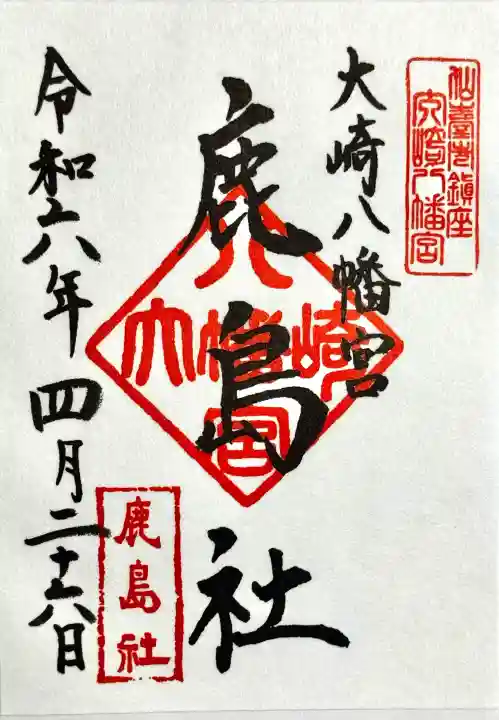 仙臺市鎮座
大崎八幡宮
大崎八幡宮
鹿島社
八
大幡崎
宮
鹿島社
令和六年四月二十六日